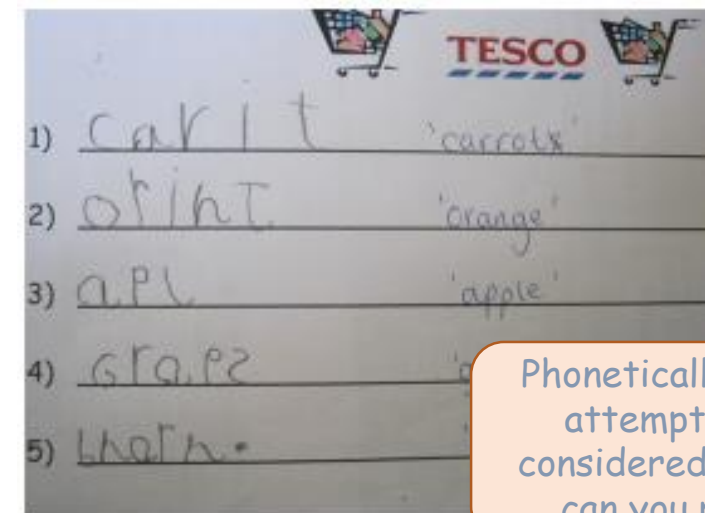 TESCO
1) carit 'carrots'
2) orint 'orange'
3) apl 'apple'
4) Grapz
5)
Phoneticall
attempt
considered
can you